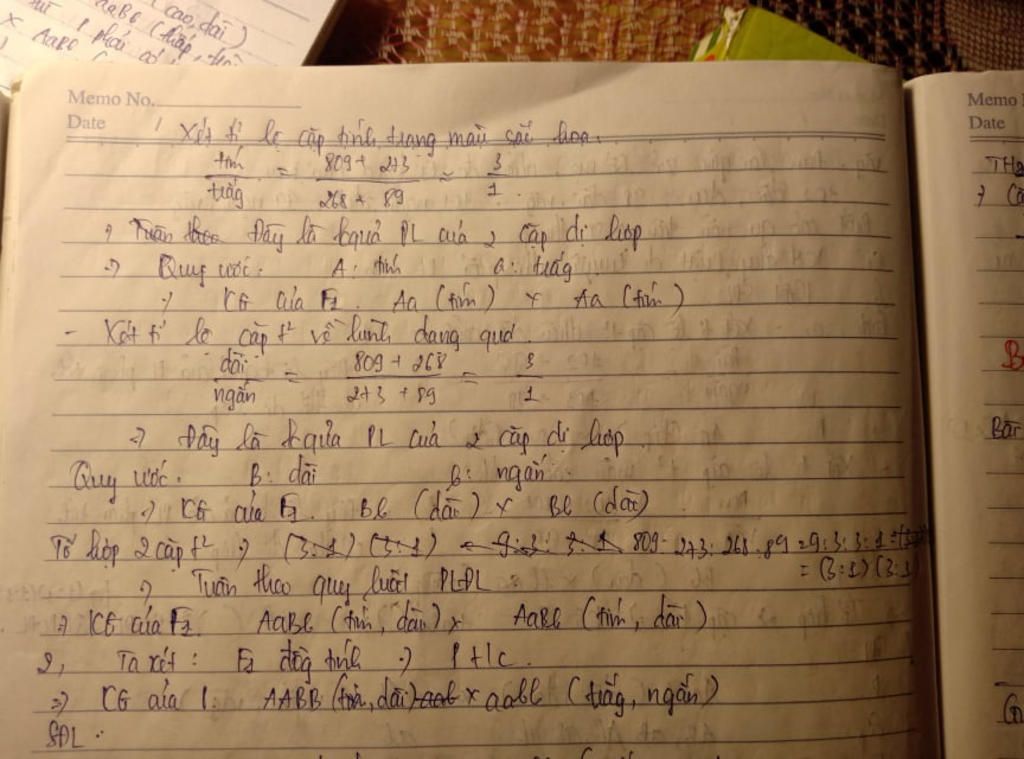 aaBb (cao, dài)
x AaBb
1 phải có
Memo No.
Date
1 Xét tỉ lệ cặp tính trạng màu sắc hoa.
tím / trắg = 809 + 273 / 268 + 89 ≈ 3 / 1
→ Tuân theo Đây là kquả PL của 2 cặp dị hợp
=> Quy ước: A: tím a: trắg
=> KG của F1. Aa (tím) x Aa (tím)
- Xét tỉ lệ cặp t² về hình dạng quả.
dài / ngắn = 809 + 268 / 273 + 89 = 3 / 1
=> Đây là kquả PL của 2 cặp dị hợp.
Quy ước. B: dài b: ngắn.
=> KG của F1. Bb (dài) x Bb (dài)
Tổ hợp 2 cặp t² => (3:1) (3:1) = 9:3:3:1 809: 273: 268: 89 = 9:3:3:1
= (3:1) (3:1)
=> Tuân theo quy luật PLĐL
=> KG của F1. AaBb (tím, dài) x AaBb (tím, dài)
2, Ta xét: F1 đồg tính => P t/c.
=> KG của P: AABB (tím, dài) aab x aabb (trắg, ngắn)
SĐL:
Memo
Date
TH2
B
Bài